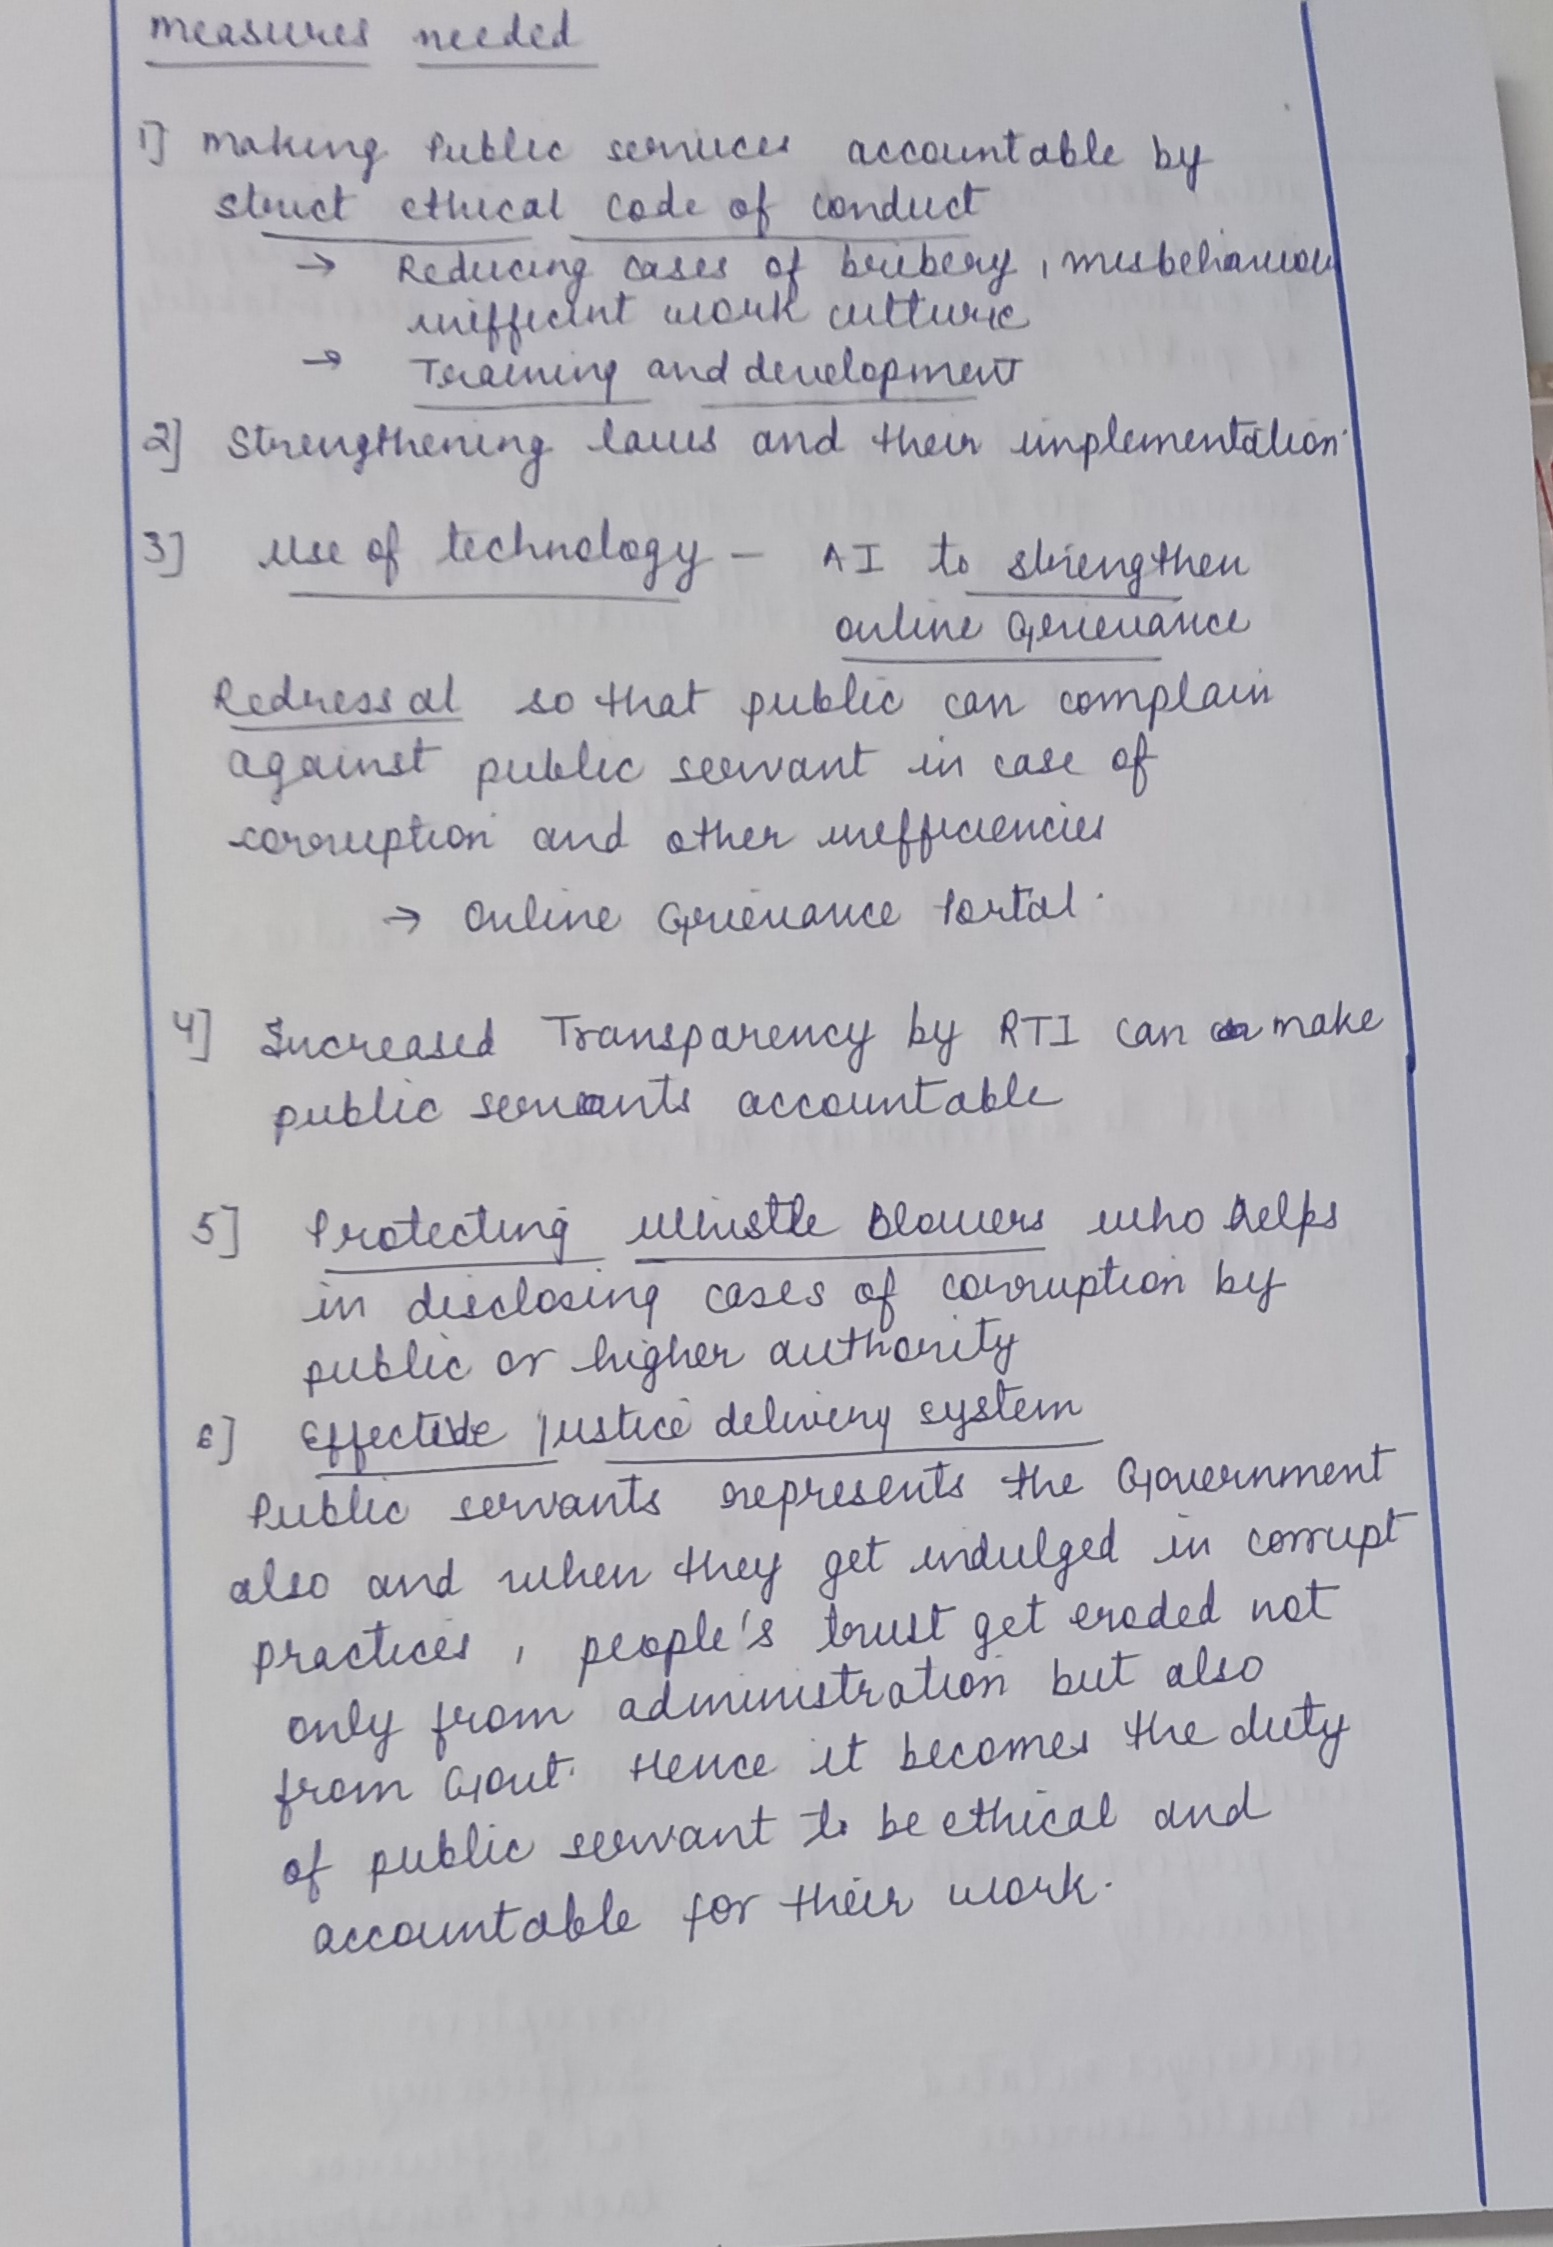 measures needed
1] Making Public services accountable by
strict ethical code of conduct
→ Reducing cases of bribery, misbehaviour
inefficient work culture
→ Training and development
2] Strengthening laws and their implementation.
3] Use of technology - AI to strengthen
online Grievance
Redressal so that public can complain
against public servant in case of
corruption and other inefficiencies
→ Online Grievance Portal.
4] Increased Transparency by RTI can make
public servants accountable
5] Protecting Whistle Blowers who helps
in disclosing cases of corruption by
public or higher authority
6] Effective Justice delivery system
Public servants represents the Government
also and when they get indulged in corrupt
practices, people's trust get eroded not
only from administration but also
from Govt. Hence it becomes the duty
of public servant to be ethical and
accountable for their work.